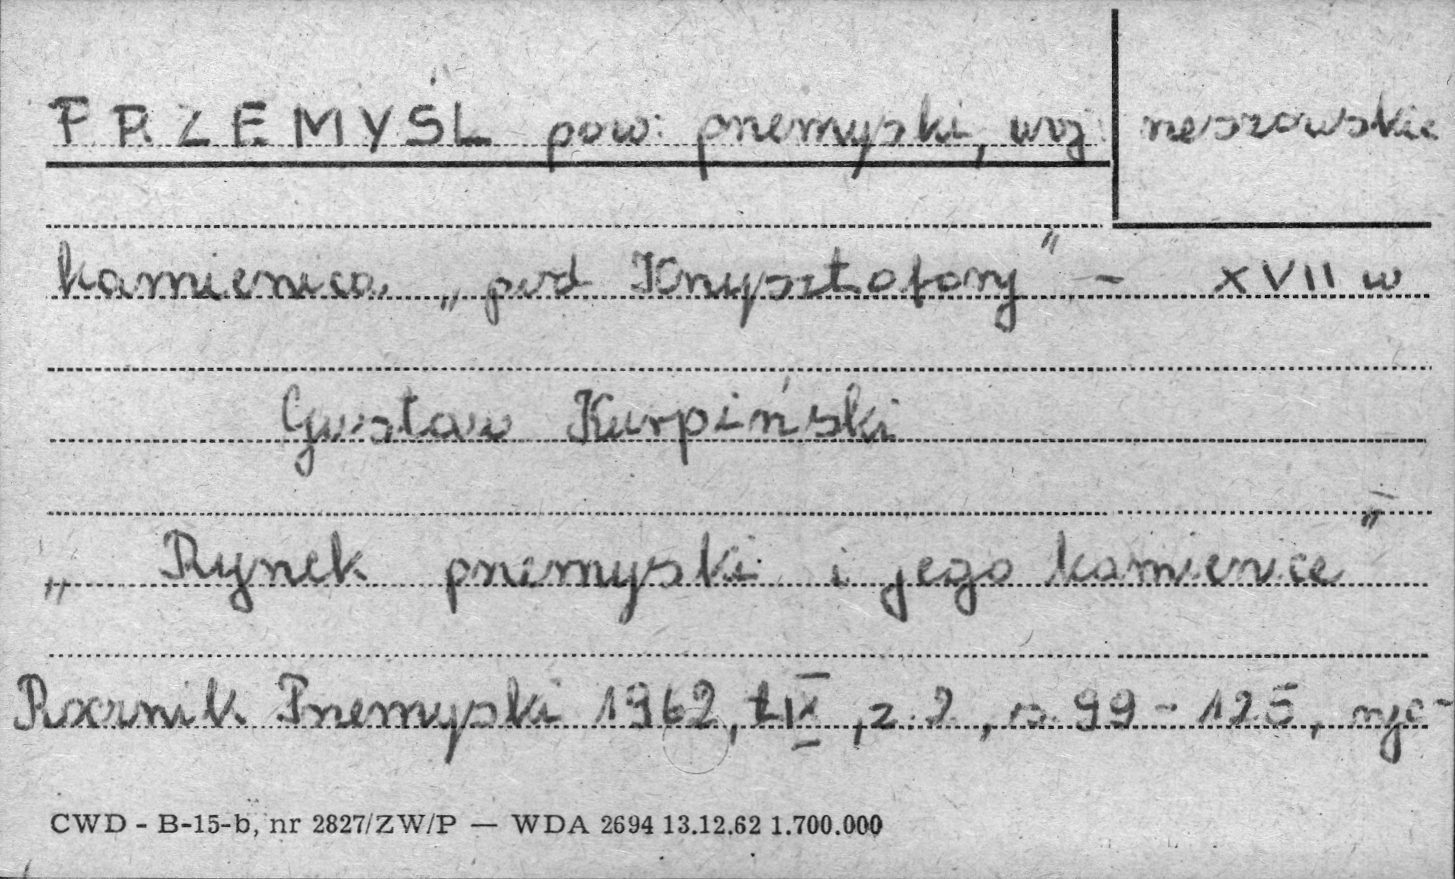 PRZEMYŚL pow. przemyski, woj rzeszowskie
kamienica „pod Krzysztofory” – XVII w
Gustaw Kurpiński
„Rynek przemyski i jego kamienice”
Rocznik Przemyski 1962, t.IX, z. 2, s. 99-125, ryc-
CWD - B-15-b, nr 2827/ZW/P — WDA 2694 13.12.62 1.700.000